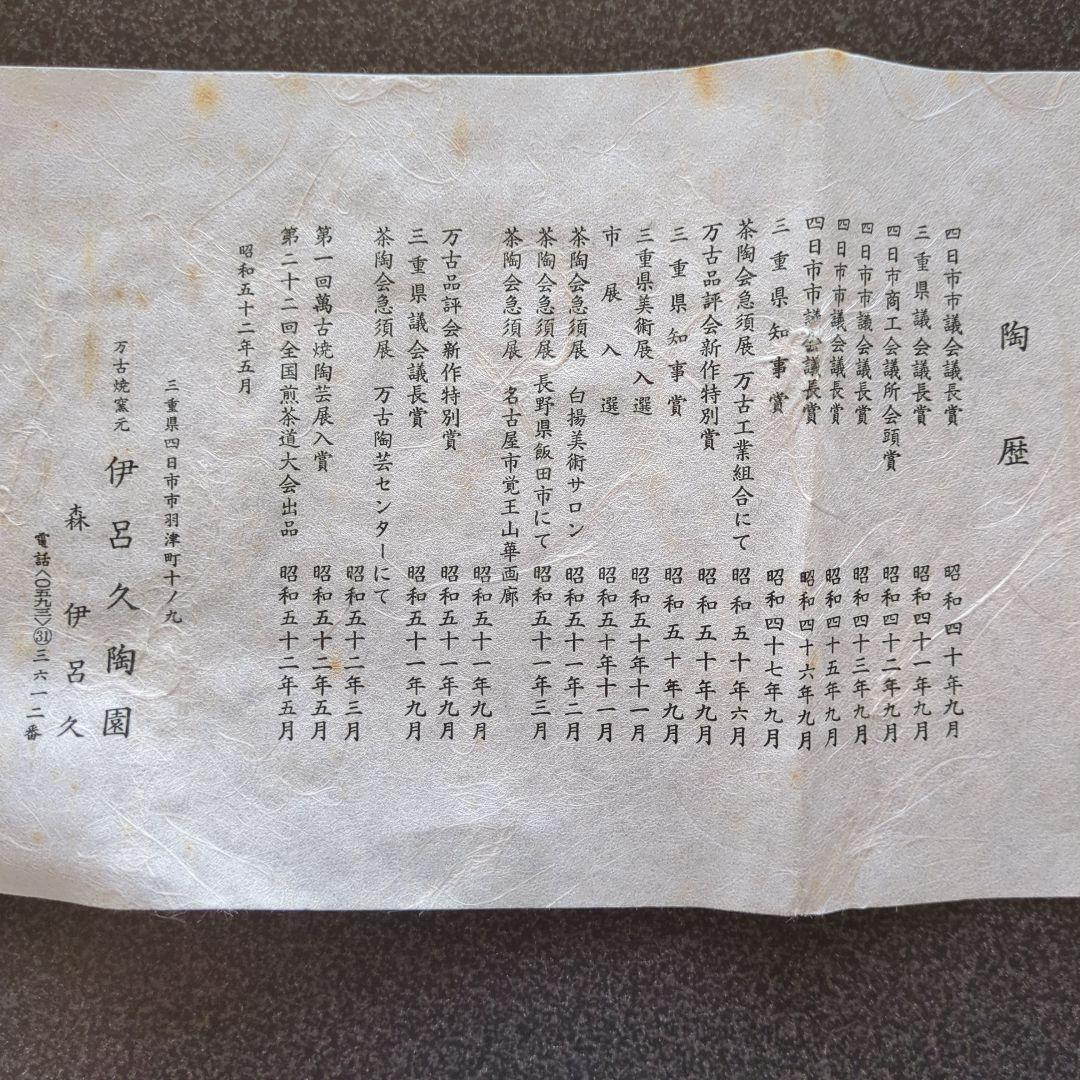 陶歴
四日市市議会議長賞 昭和四十年九月
三重県議会議長賞 昭和四十一年九月
四日市商工会議所会頭賞 昭和四十二年九月
四日市市議会議長賞 昭和四十三年九月
四日市市議会議長賞 昭和四十五年九月
四日市市議会議長賞 昭和四十六年九月
三重県知事賞 昭和四十七年九月
茶陶会急須展 万古工業組合にて 昭和五十年六月
万古品評会新作特別賞 昭和五十年九月
三重県知事賞 昭和五十年九月
三重県美術展入選 昭和五十年十一月
市展入選 昭和五十年十一月
茶陶会急須展 白揚美術サロン 昭和五十一年二月
茶陶会急須展 長野県飯田市にて 昭和五十一年三月
茶陶会急須展 名古屋市覚王山華画廊
昭和五十一年九月
万古品評会新作特別賞 昭和五十一年九月
三重県議会議長賞 昭和五十一年九月
茶陶会急須展 万古陶芸センターにて
昭和五十二年三月
第一回萬古焼陶芸展入賞 昭和五十二年五月
第二十二回全国煎茶道大会出品 昭和五十二年五月
昭和五十二年五月
三重県四日市市羽津町十ノ九
万古焼窯元 伊呂久陶園
森伊呂久
電話〈〇五九三〉㉛三六一二番